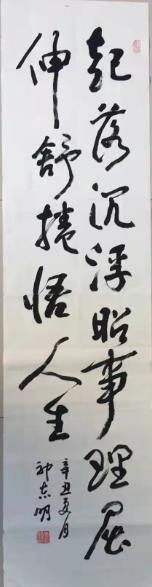 起落沉浮昭事理屈
伸舒捲悟人生
辛丑夏月